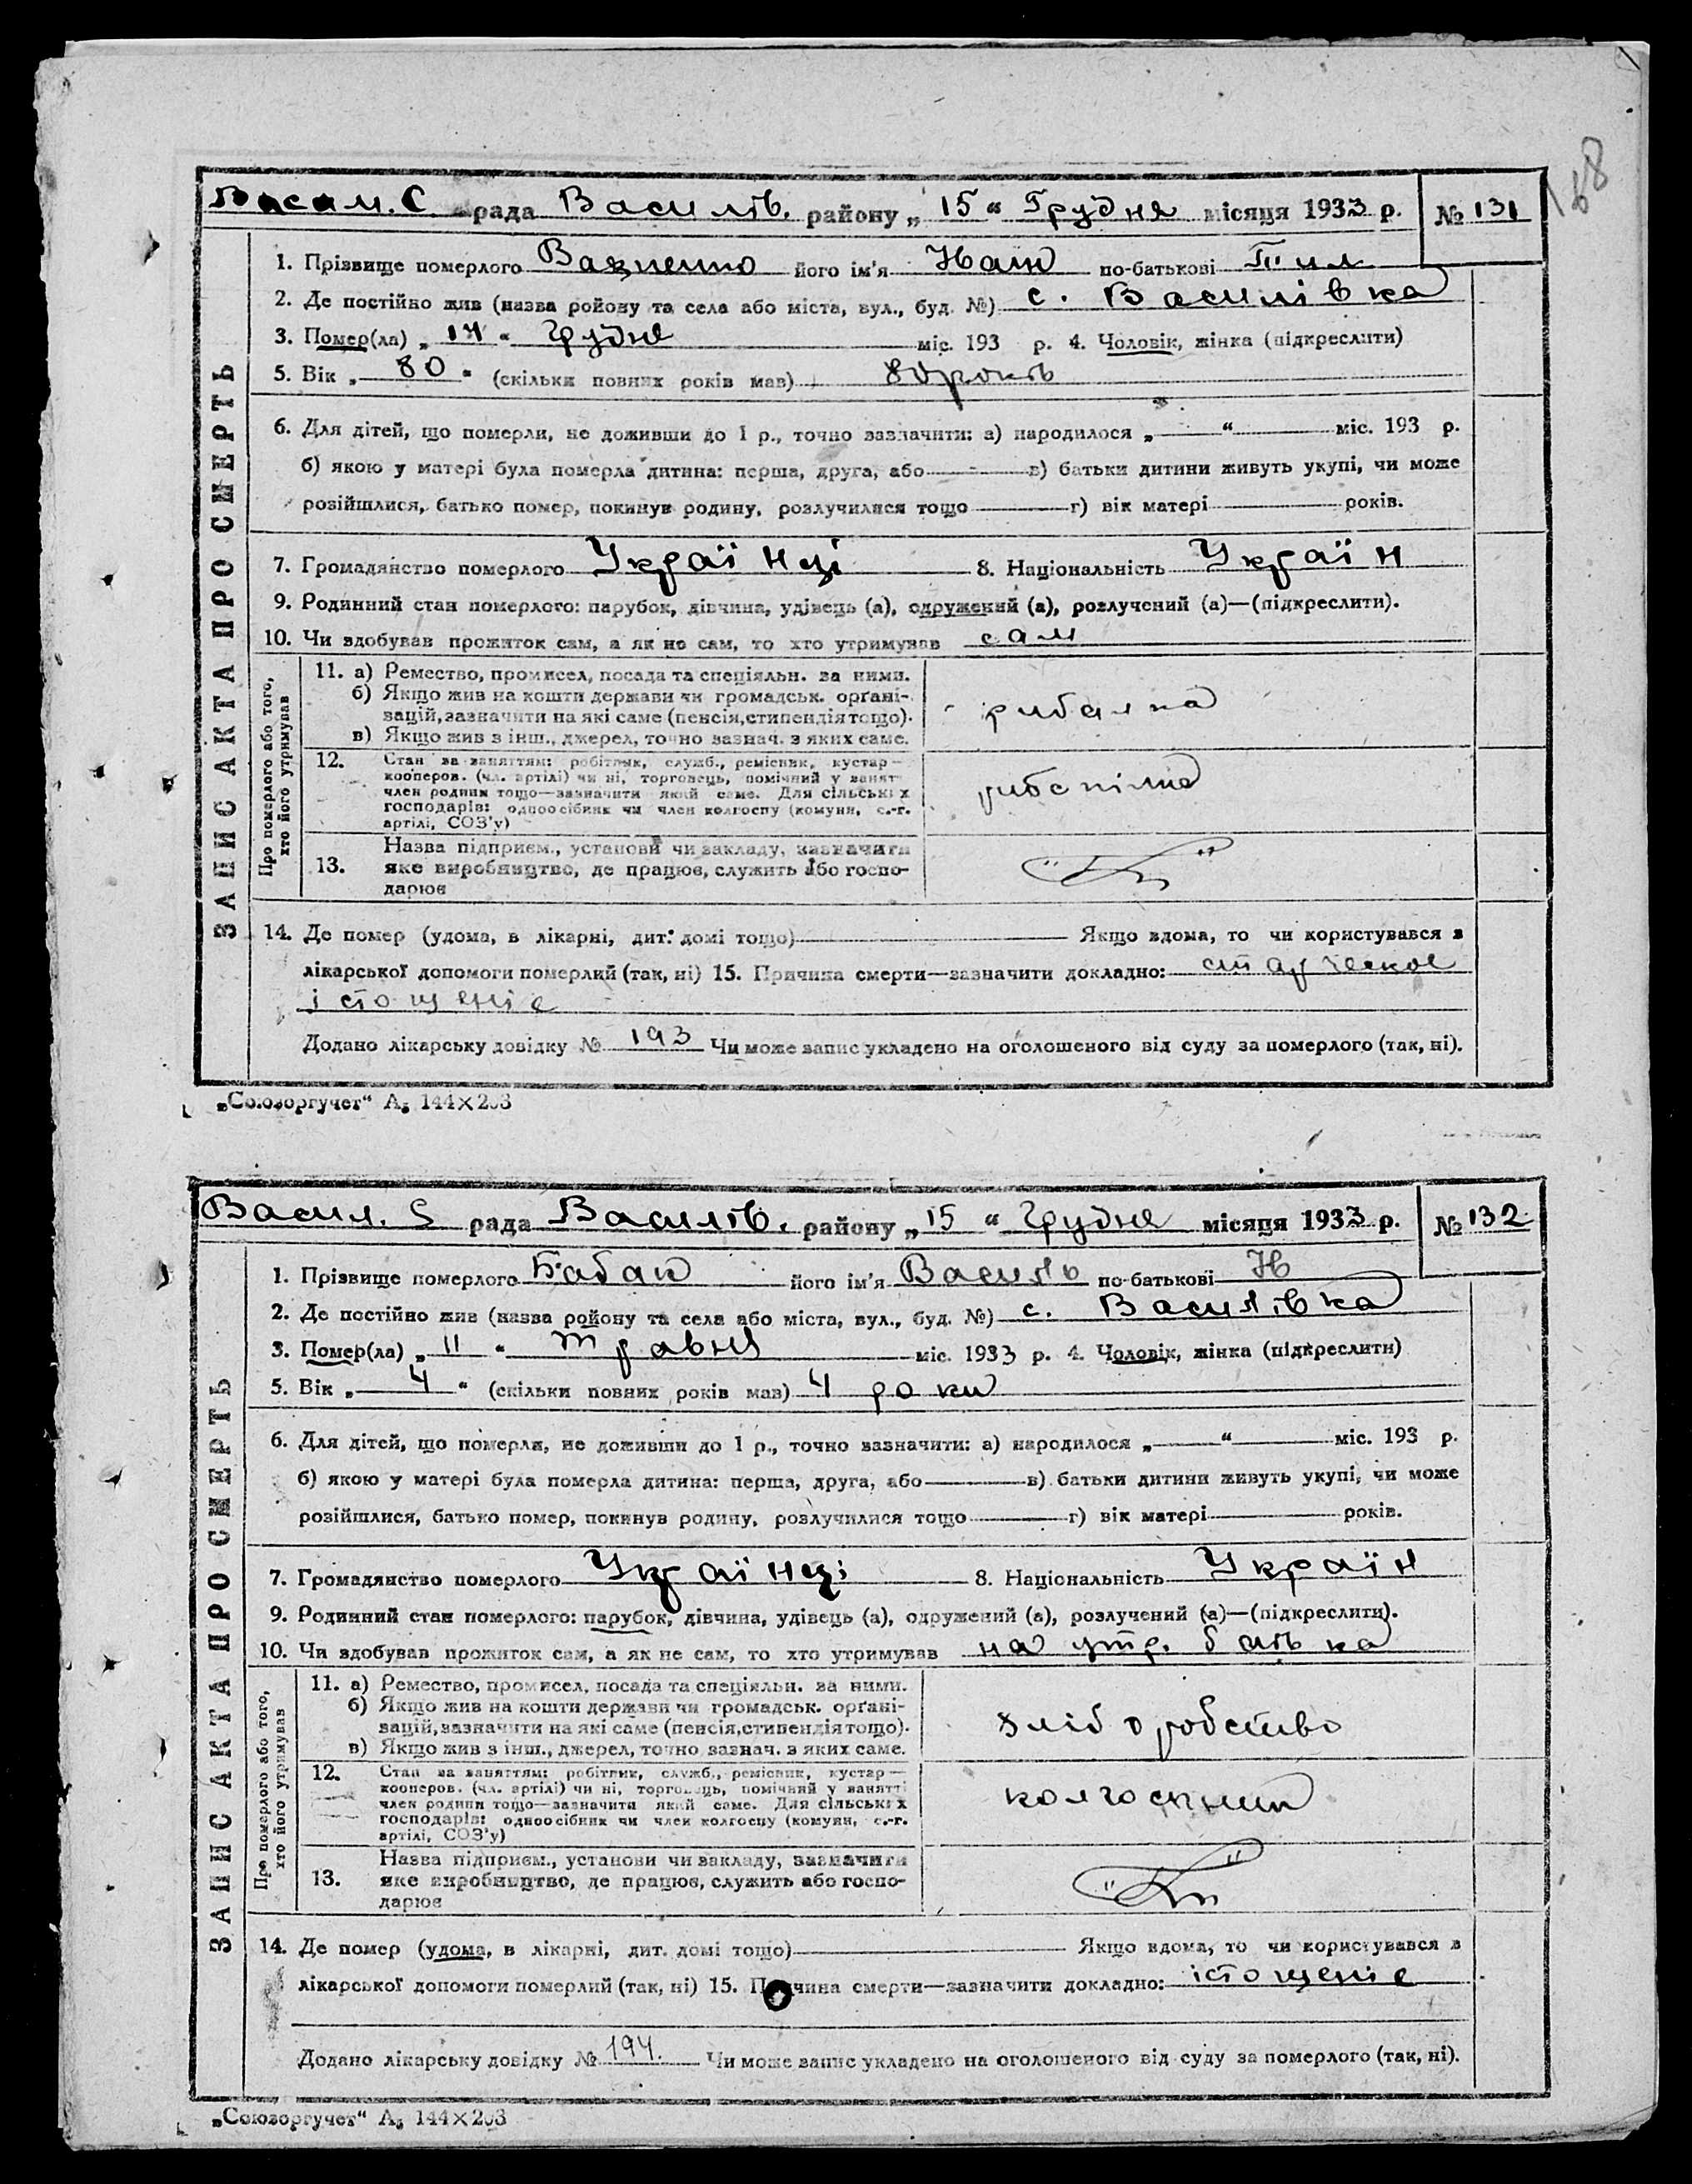 168
Васил. С. рада Василів. району „ 15 “ Грудня місяця 1933 р. № 131
1. Прізвище померлого його ім'я Іван по-батькові
2. Де постійно жив (назва ройону та села або міста, вул., буд. №) с. Василівка
3. Помер(ла) „ 14 “ грудня міс. 193 р. 4. Чоловік, жінка (підкреслити)
5. Вік „ 80 “ (скільки повних років мав) 80 років
6. Для дітей, що померли, не доживши до 1 р., точно зазначити: а) народилося „ “ міс. 193 р.
б) якою у матері була померла дитина: перша, друга, або в) батьки дитини живуть укупі, чи може
розійшлися, батько помер, покинув родину, розлучилися тощо г) вік матері років.
7. Громадянство померлого Українці 8. Національність Україн
9. Родинний стан померлого: парубок, дівчина, удівець (а), одружений (а), розлучений (а)—(підкреслити).
10. Чи здобував прожиток сам, а як не сам, то хто утримував сам
ЗАПИС АКТА ПРО СМЕРТЬ
Про померлого або того, хто його утримував
11. а) Ремество, промисел, посада та спеціяльн. за ними.
б) Якщо жив на кошти держави чи громадськ. орґані-
зацій, зазначити на які саме (пенсія, стипендія тощо).
в) Якщо жив з інш., джерел, точно зазнач. з яких саме.
рибалка
12. Стан за заняттям: робітник, служб., ремісник, кустар—
кооперов. (чл. артілі) чи ні, торговець, помічний у занят
член родини тощо—зазначити який саме. Для сільських
господарів: одноосібник чи член колгоспу (комуни, с.-г.
артілі, СОЗ'у)
рибспілка
13. Назва підприєм., установи чи закладу, зазначити
яке виробництво, де працює, служить або госпо-
дарює
14. Де помер (удома, в лікарні, дит. домі тощо) Якщо вдома, то чи користувався з
лікарської допомоги померлий (так, ні) 15. Причина смерти—зазначити докладно: старческое
істощеніе
Додано лікарську довідку № 193 Чи може запис укладено на оголошеного від суду за померлого (так, ні).
„Союзоргучет“ А₅ 144×203
Васил. С рада Василів. району „ 15 “ Грудня місяця 1933 р. № 132
1. Прізвище померлого Бабак його ім'я Василь по-батькові
2. Де постійно жив (назва ройону та села або міста, вул., буд. №) с. Василівка
3. Помер(ла) „ 11 “ травня міс. 1933 р. 4. Чоловік, жінка (підкреслити)
5. Вік „ 4 “ (скільки повних років мав) 4 роки
6. Для дітей, що померли, не доживши до 1 р., точно зазначити: а) народилося „ “ міс. 193 р.
б) якою у матері була померла дитина: перша, друга, або в) батьки дитини живуть укупі, чи може
розійшлися, батько помер, покинув родину, розлучилися тощо г) вік матері років.
7. Громадянство померлого Українці 8. Національність Україн
9. Родинний стан померлого: парубок, дівчина, удівець (а), одружений (а), розлучений (а)—(підкреслити).
10. Чи здобував прожиток сам, а як не сам, то хто утримував на утр. батька
ЗАПИС АКТА ПРО СМЕРТЬ
Про померлого або того, хто його утримував
11. а) Ремество, промисел, посада та спеціяльн. за ними.
б) Якщо жив на кошти держави чи громадськ. орґані-
зацій, зазначити на які саме (пенсія, стипендія тощо).
в) Якщо жив з інш., джерел, точно зазнач. з яких саме.
хліборобство
12. Стан за заняттям: робітник, служб., ремісник, кустар—
кооперов. (чл. артілі) чи ні, торговець, помічний у занятті
член родини тощо—зазначити який саме. Для сільських
господарів: одноосібник чи член колгоспу (комуни, с.-г.
артілі, СОЗ'у)
колгоспник
13. Назва підприєм., установи чи закладу, зазначити
яке виробництво, де працює, служить або госпо-
дарює
14. Де помер (удома, в лікарні, дит. домі тощо) Якщо вдома, то чи користувався з
лікарської допомоги померлий (так, ні) 15. Причина смерти—зазначити докладно: істощеніе
Додано лікарську довідку № 194. Чи може запис укладено на оголошеного від суду за померлого (так, ні).
„Союзоргучет“ А₅ 144×203